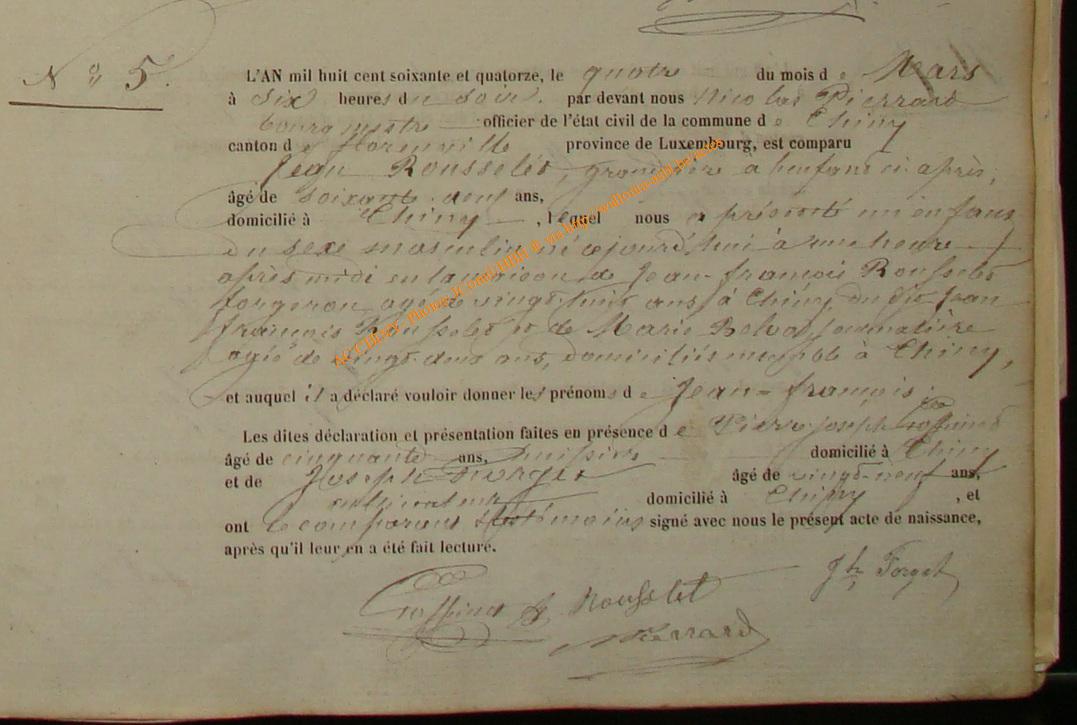 N° 5.
L'AN mil huit cent soixante et quatorze, le quatre du mois de Mars
à six heures du soir. par devant nous Nicolas Pierrard
bourgmestre officier de l'état civil de la commune de Chiny
canton de Florenville province de Luxembourg, est comparu
Jean Rousselet, grand père à l'enfant ci après,
âgé de soixante-neuf ans,
domicilié à Chiny, lequel nous a présenté un enfant
du sexe masculin, né cejourd'hui à une heure
après midi en la maison de Jean-françois Rousselet
forgeron, agé de vingt-huit ans, à Chiny, du dit Jean
françois Rousselet et de Marie
agée de vingt-deux ans, domiciliés ensemble à Chiny,
et auquel il a déclaré vouloir donner les prénoms de Jean-françois.
Les dites déclaration et présentation faites en présence de Pierre-joseph
âgé de cinquante ans, domicilié à Chiny
et de Joseph Forget âgé de vingt-neuf ans,
cultivateur domicilié à Chiny, et
ont le comparant et témoins signé avec nous le présent acte de naissance,
après qu'il leur en a été fait lecture.
Jh Forget
Rousselet
Pierrard